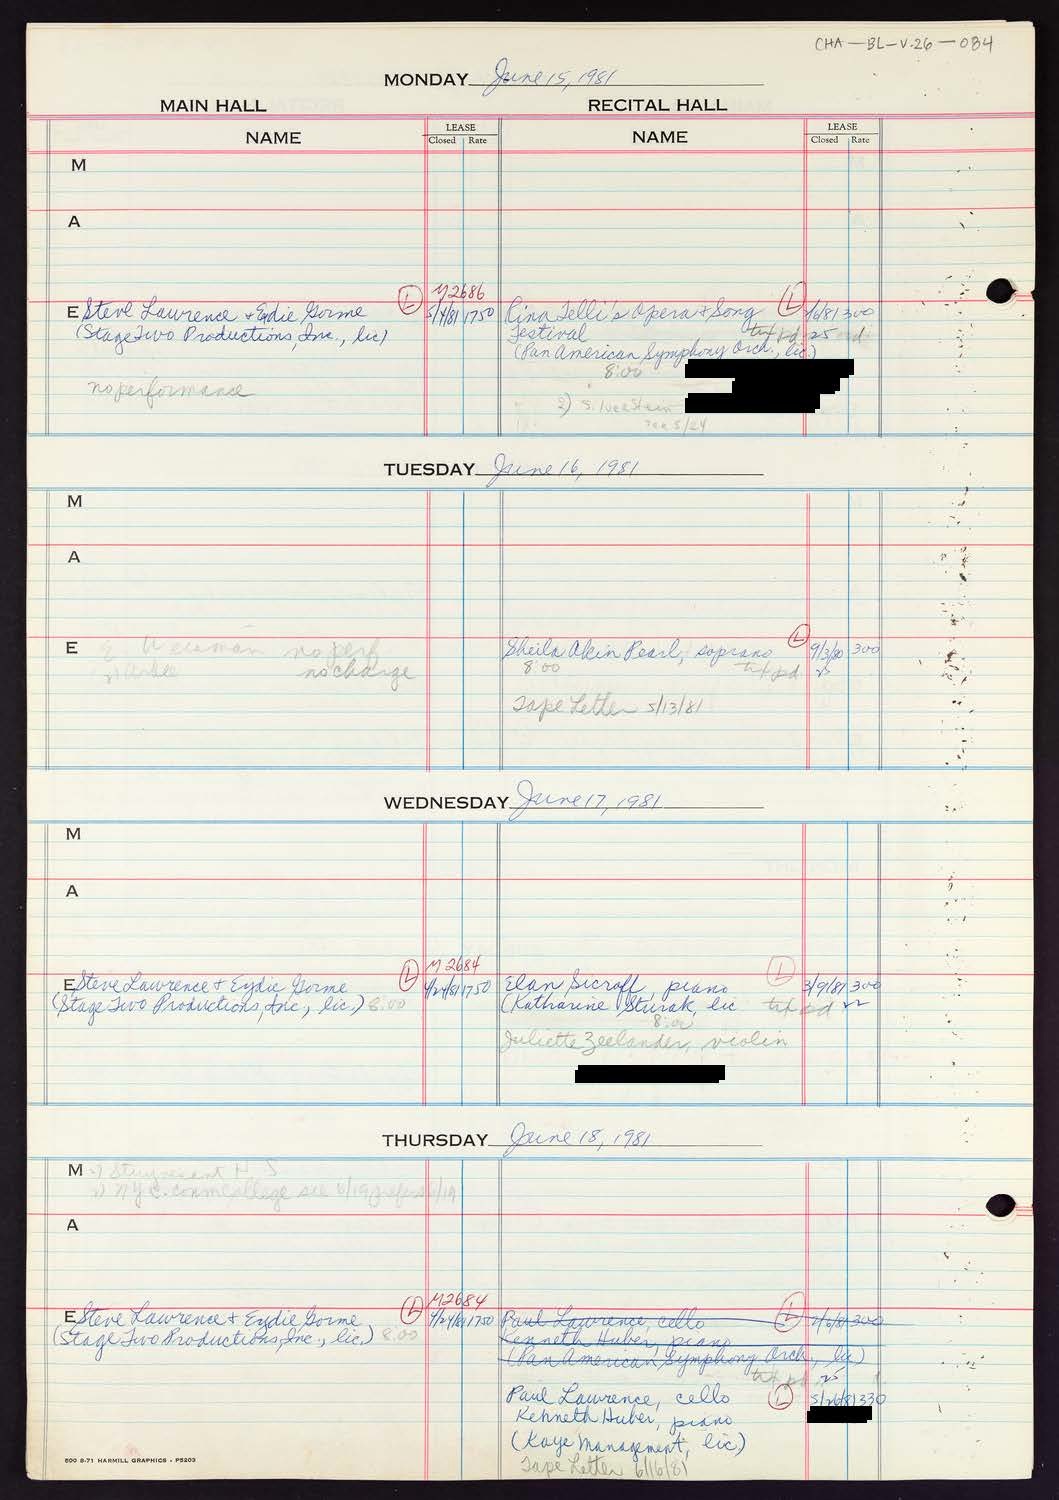 CHA-BL-V.26-084
MONDAY June 15, 1981
MAIN HALL RECITAL HALL
NAME LEASE Closed Rate NAME LEASE Closed Rate
M
A
M2686
E Steve Lawrence + Eydie Gorme L 5/4/81 1750
(Stage Two Productions, Inc., lic)
no performance
Cina Telli's Opera + Song L 1/6/81 300
Festival txt pd. 25
(Pan American Symphony Orch., lic.)
8:00
2) Silverstein
5/24
TUESDAY June 16, 1981
M
A
E no perf
no charge
Sheila Akin Pearl, soprano L 9/3/80 300
8:00 txt pd 25
Tape Letter 5/13/81
WEDNESDAY June 17, 1981
M
A
M2684
E Steve Lawrence + Eydie Gorme L 4/24/81 1750
(Stage Two Productions, Inc., lic.) 8:00
Elan Sicroff, piano L 3/9/81 300
(Katharine Sturak, lic txt pd 25
8:00
Juliette Zeelander, violin
THURSDAY June 18, 1981
M 1) Stuyvesant H S
2) NYC. comm College see 6/19 prefers 6/19
A
M2684
E Steve Lawrence + Eydie Gorme L 4/24/81 1750
(Stage Two Productions, Inc., lic.) 8:00
Paul Lawrence, cello L 2/6/81 300
Kenneth Huber, piano
(Pan American Symphony Orch., lic)
txt pd 25
Paul Lawrence, cello L 5/26/81 330
Kenneth Huber, piano
(Kaye Management, lic)
Tape Letter 6/16/81
500 8-71 HARMILL GRAPHICS - P5203